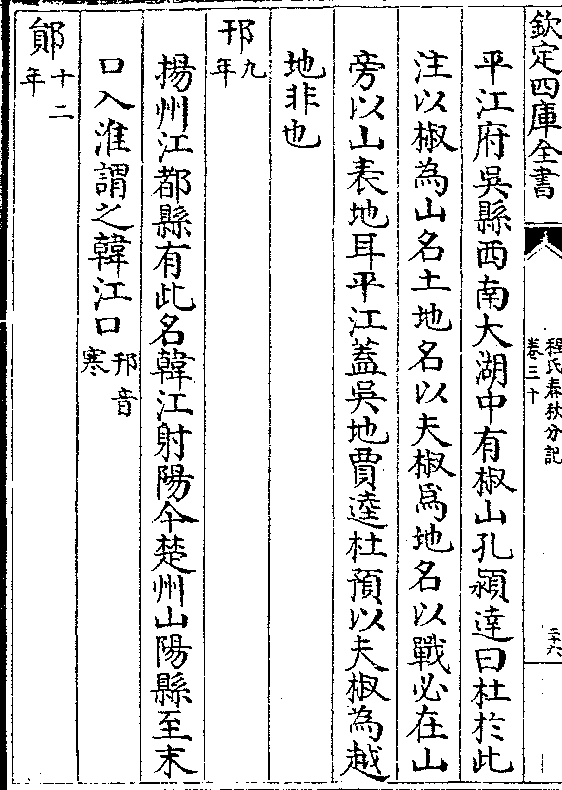 欽定四庫全書
程氏春秋分記
卷三十
二十六
平江府吳縣西南大湖中有椒山孔頴逹曰杜於此
注以椒為山名土地名以夫椒爲地名以戰必在山
旁以山表地耳平江蓋吳地賈逵杜預以夫椒為越
地非也
邗九年
揚州江都縣有此名韓江射陽今楚州山陽縣至末
口入淮謂之韓江口邗音寒
鄖十二年